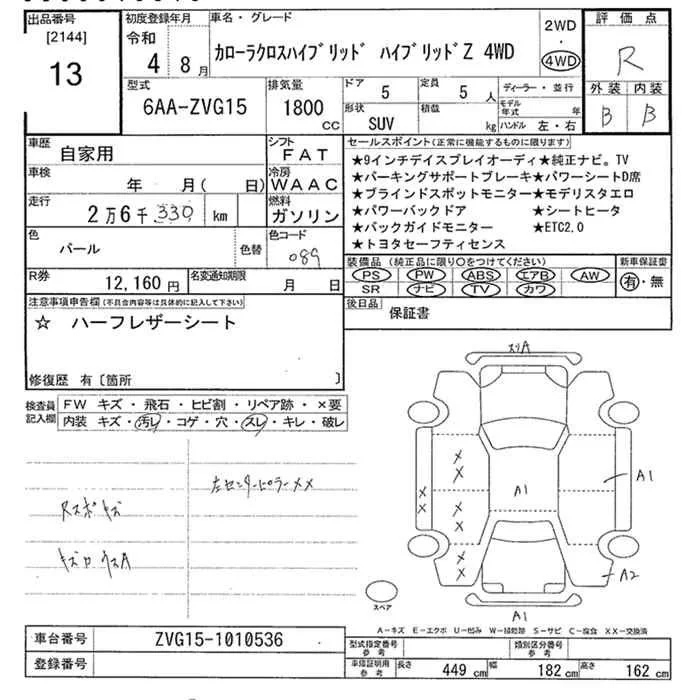 出品番号
[2144]
13
初度登録年月
令和
4年 8月
車名・グレード
カローラクロスハイブリッド ハイブリッドZ 4WD
2WD
・
4WD
評価点
R
外装 内装
B B
型式
6AA-ZVG15
排気量
1800 CC
ドア
5
定員
5人
形状
SUV
積載
kg
ディーラー・並行
モデル年式 年
ハンドル 左・右
車歴
自家用
シフト
FAT
車検
年 月( 日)
冷房
WAAC
走行
2万6千330 km
燃料
ガソリン
色
パール
色替
色コード
089
R券
12,160円
名変通知期限
月 日
セールスポイント(正常に機能するものに限ります)
★9インチディスプレイオーディ★純正ナビ。TV
★パーキングサポートブレーキ★パワーシートD席
★ブラインドスポットモニター★モデリスタエロ
★パワーバックドア ★シートヒータ
★バックガイドモニター ★ETC2.0
★トヨタセーフティセンス
装備品(純正品に限り○をつけてください)
PS PW ABS エアB AW
SR ナビ TV カワ
新車保証書
有・無
後日品
保証書
注意事項申告欄(不具合内容等は具体的に記入して下さい)
☆ ハーフレザーシート
修復歴 有〔箇所 〕
検査員記入欄
FW キズ・飛石・ヒビ割・リペア跡・×要
内装 キズ・汚レ・コゲ・穴・スレ・キレ・破レ
左センターピラーXX
スリA
A1
A1
A2
A1
XX
XX
XX
XX
スペア
A−キズ E−エクボ U−凹み W−補修跡 S−サビ C−腐食 XX−交換済
車台番号
ZVG15-1010536
登録番号
型式指定番号 参考
類別区分番号 参考
車検証明用 参考
長さ 449 cm 幅 182 cm 高さ 162 cm